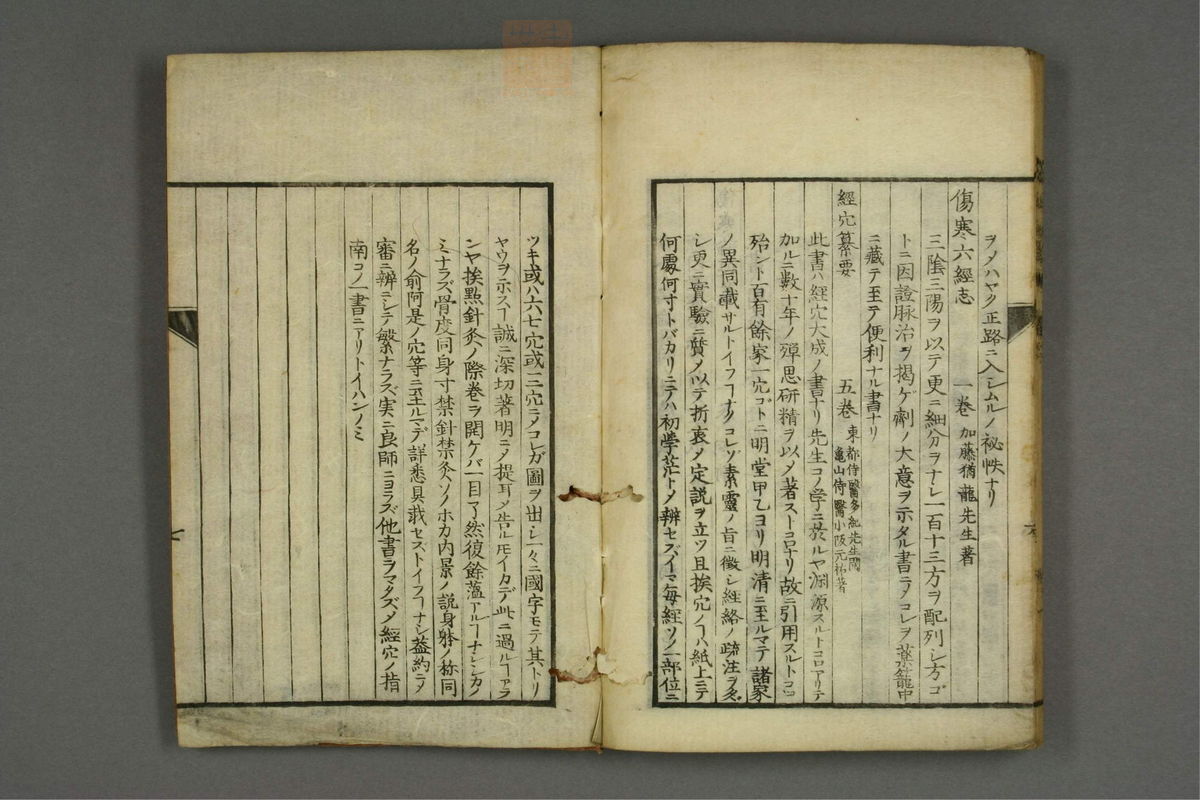 ヲノハヤク正路ニ入シムルノ祕帙ナリ
傷寒六經志 一卷 加藤猶龍先生著
三陰三陽ヲ以テ更ニ細分ヲナシ一百十三方ヲ配列シ方ゴ
トニ因證脉治ヲ揭ゲ劑ノ大意ヲ示タル書ニテコレヲ藥籠中
ニ藏テ至テ便利ナル書ナリ
經穴纂要 五卷 東都侍醫多紀先生閲 亀山侍醫小阪元祐著
此書ハ經穴大成ノ書ナリ先生コノ学ニ於ルヤ渊源スルトコロアリテ
加ルニ数十年ノ殫思研精ヲ以メ著ストコロナリ故ニ引用スルトコロ
殆ント百有餘家一穴ゴトニ明堂甲乙ヨリ明清ニ至ルマテ諸家
ノ異同載サルトイフヿナクコレヲ素靈ノ旨ニ徵シ經絡ノ疏注ヲ炙
シ更ニ實驗ニ質メ以テ折衷メ定説ヲ立ツ且挨穴ノヿハ紙上ニテ
何處何寸トバカリニテハ初學茫トメ辨セズイマ毎經ソノ一部位ニ
ツキ或ハ六七穴或二三穴ヲノコレガ圖ヲ出シ一々ニ國字モテ其トリ
ヤウヲ示スヿ誠ニ深切著明ニメ提耳メ告ルモイカデ此ニ過ルヿアラ
ンヤ挨點針灸ノ際巻ヲ開ケバ一目了然復餘薀アルヿナシ
ミナラズ骨度同身寸禁針禁灸ソノホカ内景ノ説身體ノ称同
名ノ俞阿是ノ穴等ニ至ルマデ詳悉具載セストイフヿナシ蓋約ニメ
審ニ辨ニシテ繁ナラズ実ニ良師ニヨラズ他書ヲマタズメ經穴ノ指
南コノ一書ニアリトイハンノミ
六
七